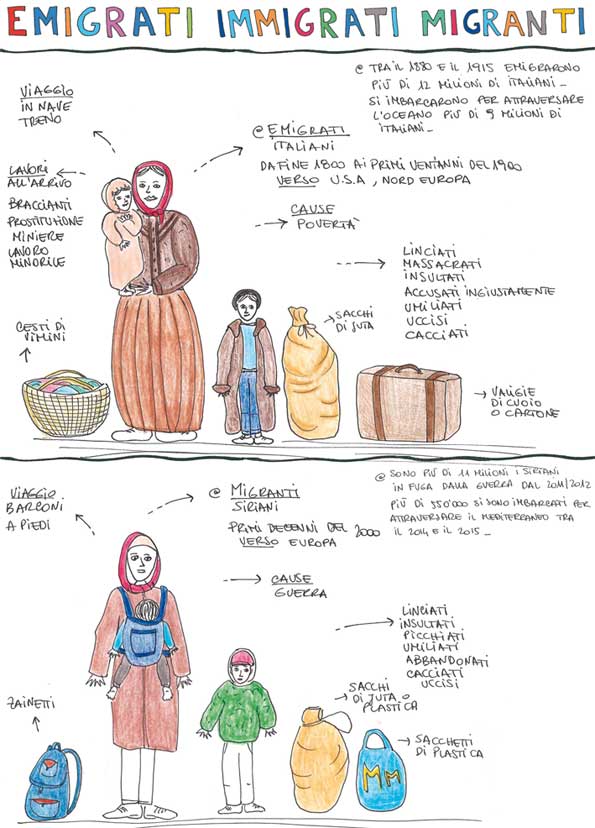 EMIGRATI IMMIGRATI MIGRANTI
@ TRA IL 1880 E IL 1915 EMIGRARONO
PIÙ DI 12 MILIONI DI ITALIANI_
SI IMBARCARONO PER ATTRAVERSARE
L'OCEANO PIÙ DI 9 MILIONI DI
ITALIANI_
VIAGGIO
IN NAVE
TRENO
@ EMIGRATI
ITALIANI
DA FINE 1800 AI PRIMI VENT'ANNI DEL 1900
VERSO U.S.A, NORD EUROPA
LAVORI
ALL'ARRIVO
BRACCIANTI
PROSTITUZIONE
MINIERE
LAVORO
MINORILE
CAUSE
POVERTÀ
LINCIATI
MASSACRATI
INSULTATI
ACCUSATI INGIUSTAMENTE
UMILIATI
UCCISI
CACCIATI
CESTI DI
VIMINI
SACCHI
DI JUTA
VALIGIE
DI CUOIO
O CARTONE
@ SONO PIÙ DI 11 MILIONI I SIRIANI
IN FUGA DALLA GUERRA DAL 2011/2012
PIÙ DI 550'000 SI SONO IMBARCATI PER
ATTRAVERSARE IL MEDITERRANEO TRA
IL 2014 E IL 2015_
VIAGGIO
BARCONI
A PIEDI
@ MIGRANTI
SIRIANI
PRIMI DECENNI DEL 2000
VERSO EUROPA
CAUSE
GUERRA
LINCIATI
INSULTATI
PICCHIATI
UMILIATI
ABBANDONATI
CACCIATI
UCCISI
ZAINETTI
SACCHI
DI JUTA O
PLASTICA
SACCHETTI
DI PLASTICA
Mm